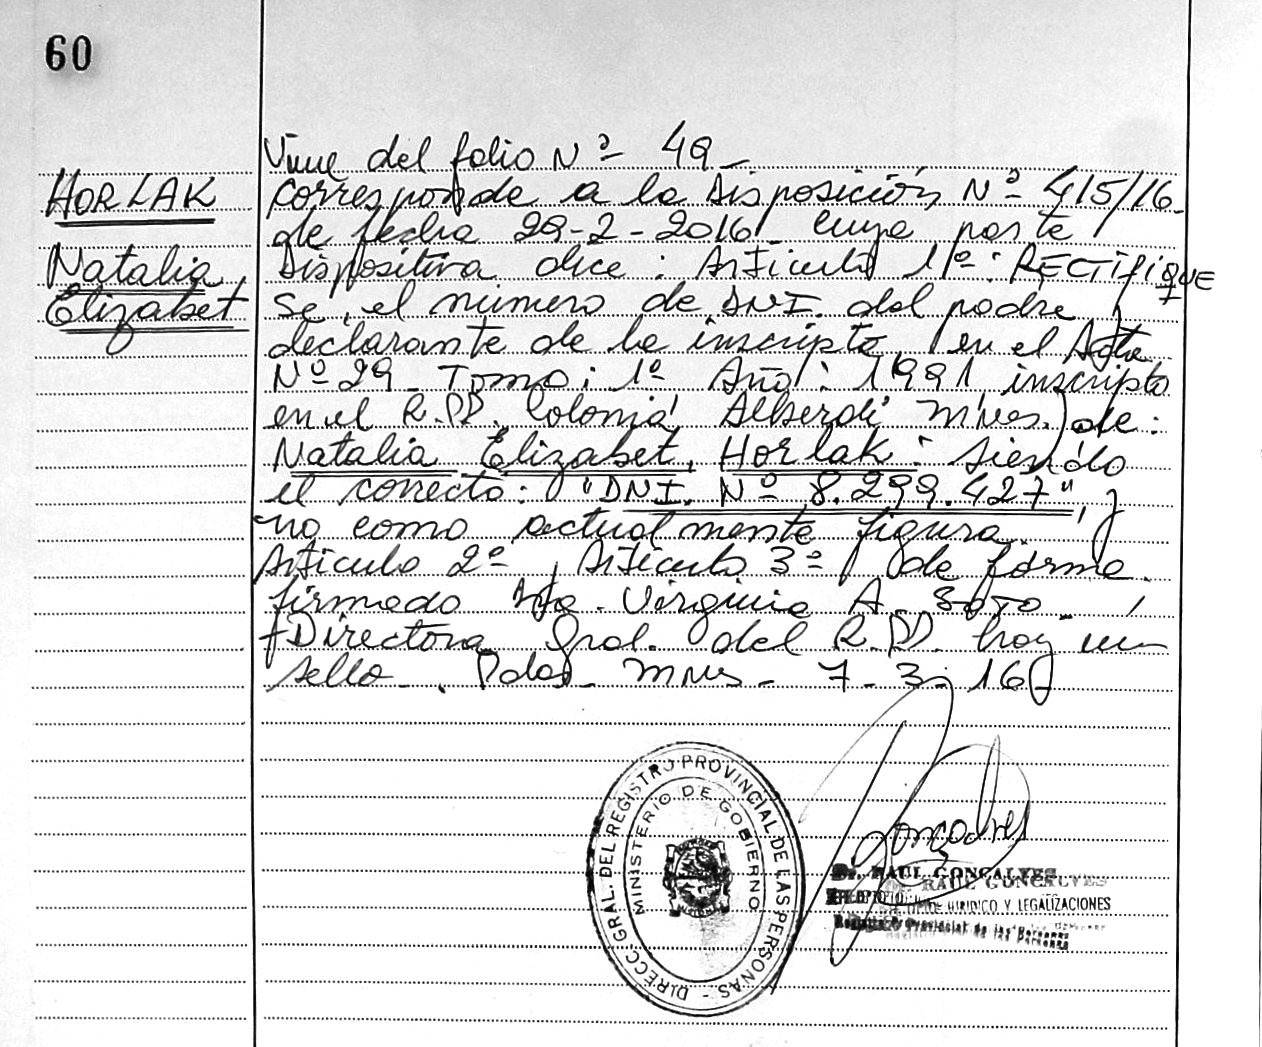 60
HORLAK
Natalia
Elizabet
Viene del folio Nº 49
Corresponde a la Disposición Nº 415/16
de fecha 29-2-2016 cuya parte
Dispositiva dice: Artículo 1º: RECTIFIQUE
se, el número de DNI. del padre y
declarante de la inscripta, en el Acta
Nº 29 Tomo: 1º Año: 1991 inscripta
en el R.PP. Colonia Alberdi Mnes. de:
Natalia Elizabet, Horlak: siendo
el correcto: "DNI. Nº 8.299.427", y
no como actualmente figura.
Artículo 2º, Artículo 3º de forma.
firmado Virginia A. Soto
Directora Gral. del R.PP. hay un
sello. Pdas. Mnes - 7-3-16
DIRECC. GRAL. DEL REGISTRO PROVINCIAL DE LAS PERSONAS -
MINISTERIO DE GOBIERNO
Goncalves
Dr. RAUL GONCALVES
RAUL GONCALVES
JURIDICO Y LEGALIZACIONES
Registro Provincial de las Personas